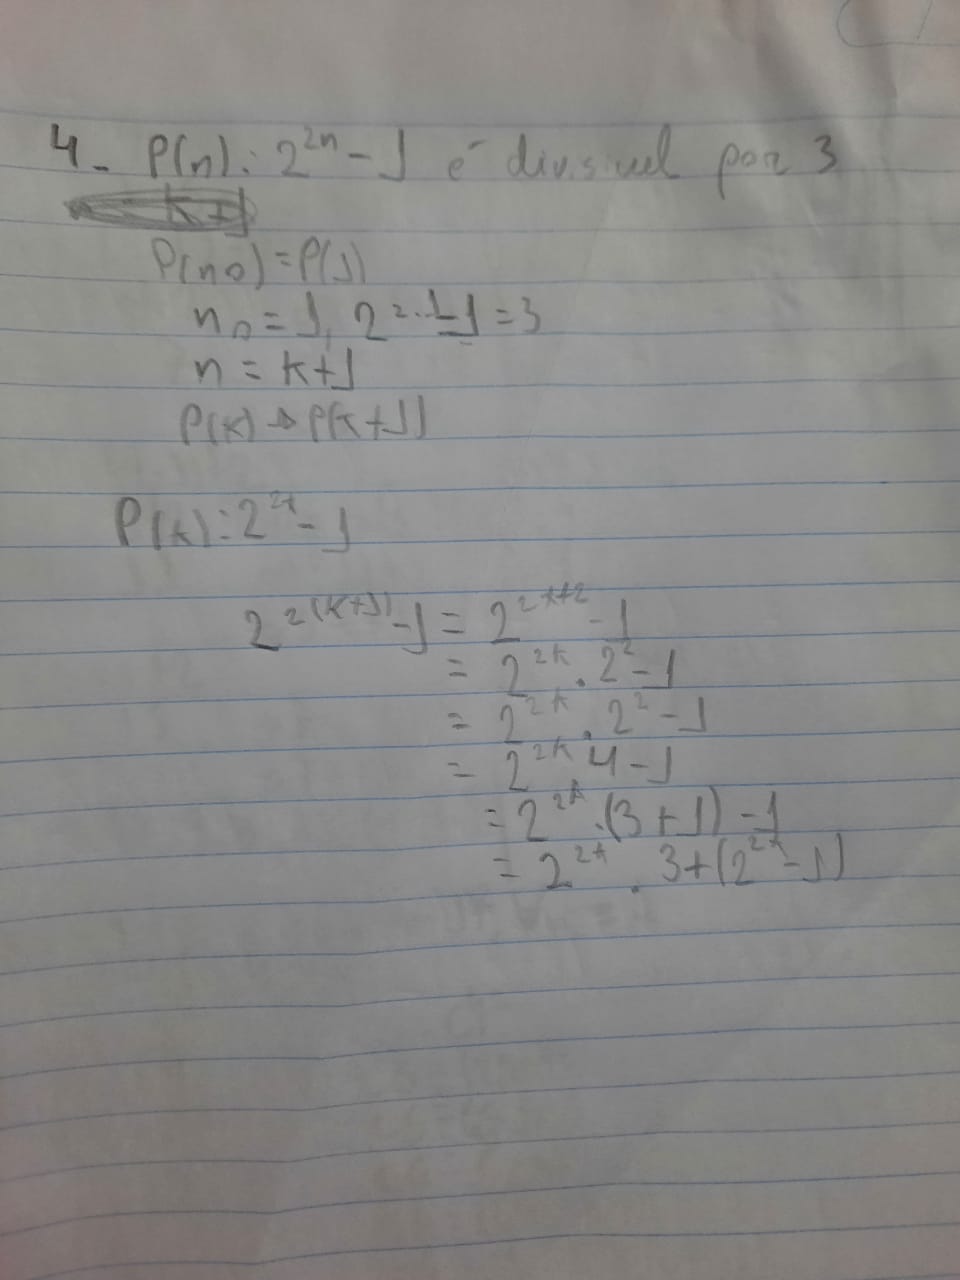 4- P(n): 2²ⁿ - 1 é divisivel por 3
P(n0) = P(1)
n0 = 1, 2²·¹-1 = 3
n = k+1
P(k) → P(k+1)
P(k): 2²ᵏ - 1
2²⁽ᵏ⁺¹⁾ - 1 = 2²ᵏ⁺² - 1
= 2²ᵏ . 2² - 1
= 2²ᵏ . 2² - 1
= 2²ᵏ 4 - 1
= 2²ᵏ .(3 + 1) - 1
= 2²ᵏ . 3 + (2²ᵏ - 1)